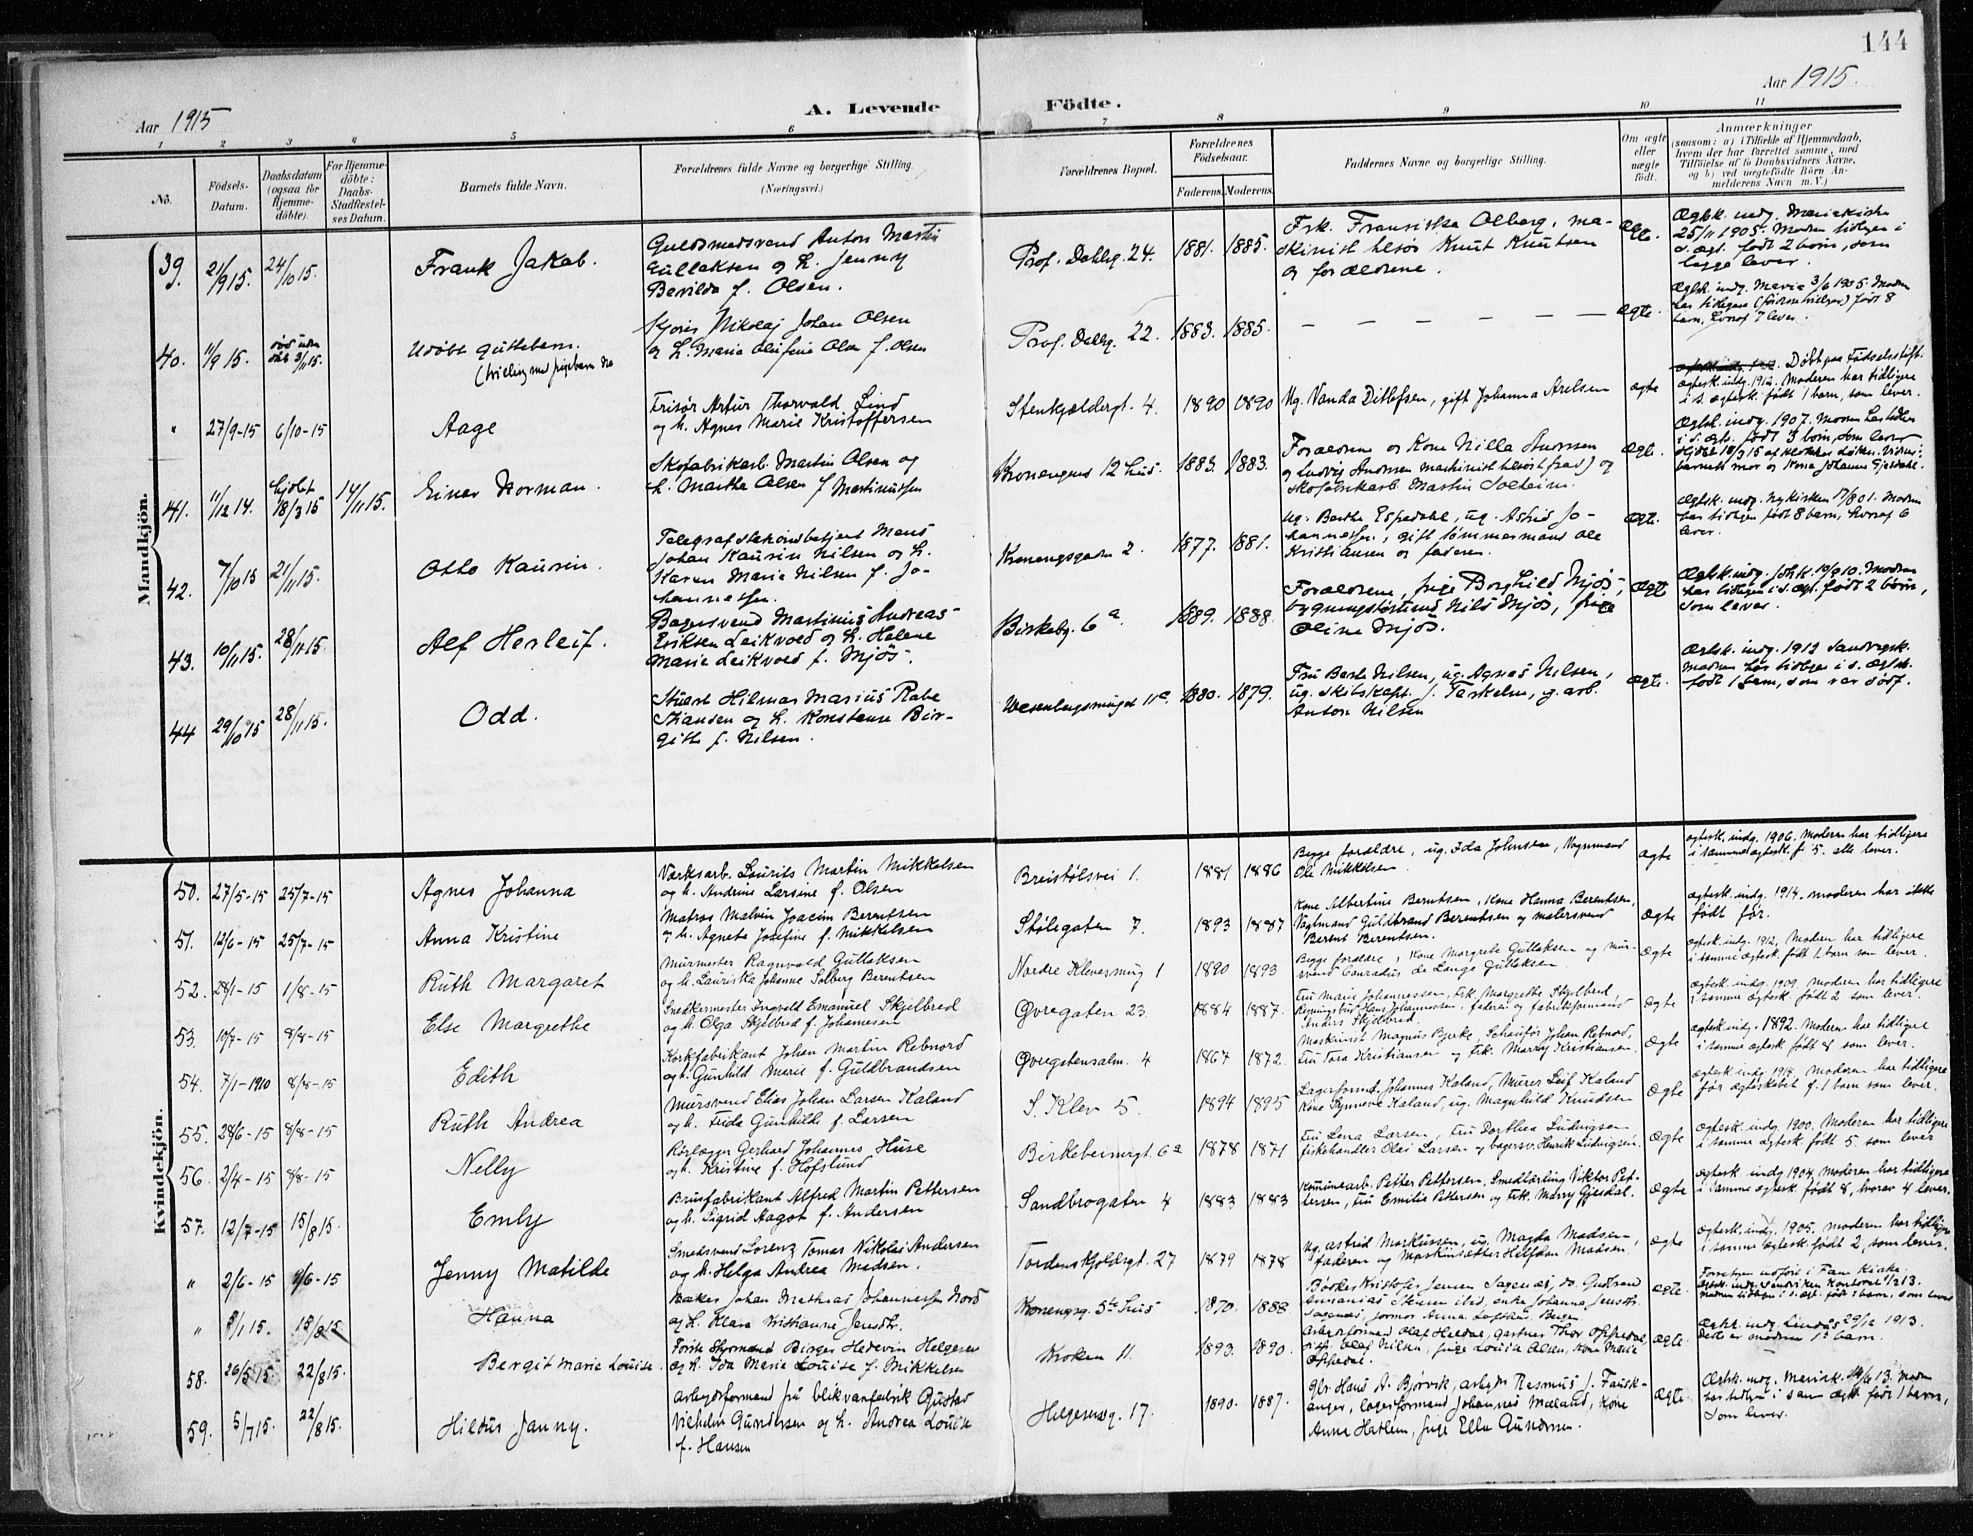 144
Aar 1915
A. Levende Födte.
Aar 1915.
1 2 3 4 5 6 7 8 9 10 11
No.
Födsels-
Datum.
Daabsdatum
(ogsaa for
Hjemme-
döbte).
For Hjemme-
döbte:
Daabs-
Stadfæstel-
ses Datum.
Barnets fulde Navn.
Forældrenes fulde Navne og borgerlige Stilling.
(Næringsvei.)
Forældrenes Bopæl.
Forældrenes
Födselsaar.
Faderens. Moderens.
Faddernes Navne og borgerlige Stilling.
Om ægte
eller
uægte
födt.
Anmærkninger
(saasom: a) i Tilfælde af Hjemmedaab,
hvem der har forrettet samme, med
Tilföielse af to Daabsvidners Navne,
og b) ved uægtefödte Börn An-
melderens Navn m. V.)
Mandkjön.
39. 21/9 15. 24/10 15.
Frank Jakob.
Guldsmedsvend Anton Martin
Gullaksen og h. Jenny
Bevilda f. Olsen.
Prof. Dahlg. 24. 1881. 1885.
Frk. Franziska Olberg, ma-
skinist Knut Knutsen
og forældrene.
Ægte.
Ægtsk. indg. Mariakirken
25/11 1905. Moderen tidligere i
s. ægt. født 2 børn, som
begge lever.
40. 11/9 15. død uden
dåb 3/11 15.
Udøbt guttebarn.
(tvilling med pigebarn No
Nikolaj Johan Olsen
og h. Maria Olufine Olsen f. Olsen
Prof. Dahlg. 22. 1883. 1885.
Ægte.
Ægtsk. indg. Maria 3/6 1905. Modren
har tidligere født 8
børn, hvoraf 7 lever.
" 27/9-15 6/10-15
Aage
Frisör Artur Thorvald Lind
og h. Agnes Marie Kristoffersen
Stenkjældergt. 4. 1890 1890
Ug. Vanda Ditlefsen, gift Johanna Axelsen
ægte
Döbt paa Födselsstift.
ægtesk. indg. 1912. Moderen har tidligere
i s. ægtesk. födt 1 barn, som lever.
41. 11/12 14. hjdøbt
18/3 15 14/11 15.
Einar Norman.
Skofabrikarb. Martin Olsen og
h. Martha Olsen f. Martinussen
Kronengens 12 hus. 1883. 1883.
Forældrene og Kone Nilla Andersen
og Ludvig Andersen maskinist og
skofabrikarb. Martin Solheim.
Ægte.
Ægtsk. indg. 1907. Modren har tidligere
i s. ægt. født 3 børn, som lever.
42. 7/10 15 21/11 15.
Otto Kaurin.
Telegrafstationsbetjent Mons
Johan Kaurin Nilsen og h.
Karen Marie Nilsen f. Jo-
hannessen.
Kronengsgaden 2. 1877. 1881.
Ug. Berthe Espedahl, ug. Astrid Jo-
hannessen, gift tømmermand Ole
Kristiansen og faderen.
Ægte.
Ægtsk. indg. Nykirken 17/8 01. Modren
har tidligere født 8 børn, hvoraf 6
lever.
43. 10/11 15. 28/11 15.
Alf Herleif.
Bagersvend Martinius Andreas
Eriksen Leikvold og h. Helene
Marie Leikvold f. Mjøs.
Birkebg. 6 a. 1889. 1888.
Forældrene, frøken Borghild Mjøs,
bygningssnekker Nils Mjøs, frk
Oline Mjøs.
Ægte
Ægtsk. indg. Joh.k. 10/9 10. Modren
har tidligere i s. ægt. født 2 børn,
som lever.
44 29/10 15 28/11 15.
Odd.
Stuert Hilmar Marius Rabe
Kiansen og h. Konstanse Bir-
gith f. Nilsen.
1880. 1879.
Fru Berthe Nilsen, ug. Agnes Nilsen,
ug. Skibskapt. J. Terkelsen, g. arb.
Anton Nilsen
Ægte.
Ægtsk. indg. 1913 Sandvigsk.
Modren har tidligere i s. ægtsk.
født 1 barn, som var død.
Kvindekjön.
50. 27/5-15 25/7-15
Agnes Johanna
Værksarb. Laurits Martin Mikkelsen
og h. Andrine Larsine f. Olsen
Breistølsvei 1. 1881 1886
Begge forældre, ug. Ida Johnsen, Vognmand
Ole Mikkelsen.
ægte
ægtesk. indg. 1906. Moderen har tidligere
i samme ægtesk. f. 5. alle lever.
51. 12/6-15 25/7-15
Anna Kristine
Matros Malvin Joacim Berentsen
og h. Agnete Josefine f. Mikkelsen
Stølegaten 7. 1893 1887
Kone Albertine Berntsen, Kone Hanna Berentsen,
Vagtmand Guldbrand Berentsen og malersvend
Bernt Berentsen.
Ægte
ægtesk. indg. 1914. moderen har ikke
født før.
52. 28/1-15 1/8-15
Ruth Margaret
Murmester Ragnvald Gullaksen
og h. Lauriska Johanne Solberg Berentsen
Nordre Klevesmug 1 1890 1893
Begge forældre, Kone Margrete Gullaksen og mur-
svend Conradus de Lange Gullaksen.
Ægte
ægtesk. indg. 1912. Modern har tidligere
i samme ægtesk. født 1 barn som lever.
53. 10/7-15 8/8-15
Else Margrethe
Snedkermester Ingvald Emanuel Skjelbred
og h. Olga Skjelbred f. Johannesen
Øvregaten 23. 1884 1887.
Fru Marie Johannessen, Frk. Margrethe Skjelbred
Hans Johannessen, faderen og fabrikformand
Anders Skjelbred
Ægte
ægtesk. indg. 1909. moderen har tidligere
i samme ægtesk. født 2 som lever.
54. 7/1-1910 8/8-15
Edith
Korkfabrikant Johan Martin Rebnord
og h. Gunhild Marie f. Guldbrandsen
Øvregatensalm. 4 1867 1872.
Maskinist Magnus Bjerke, Schauför Johan Rebnord,
Fru Thea Kristiansen og Frk. Marry Kristiansen.
Ægte
ægtesk. indg. 1892. Modern har tidligere
i samme ægtesk. født 8 som lever.
55. 28/6-15 8/8-15
Ruth Andrea
Mursvend Elias Johan Larsen Kaland
og h. Frida Gunhilde f. Larsen
S. Klev 5. 1894 1895
Lagerformd. Johannes Kaland, Murer Leif Kaland
Kone Synnøve Kaland, ug. Magnhild Knudsen
Ægte
ægtesk. indg. 1914. Moderen har tidligere
før ægteskabet f. 1 barn som lever.
56. 2/4-15 8/8-15
Nelly
Rörlægger Gerhard Johannes Huse
og h. Kristine f. Hofslund
Birkebeinergt. 6a 1878 1871
Fru Lena Larsen, Fru Dorthea Ludvigsen
fiskehandler Olai Larsen og bagersv. Henrik Ludvigsen.
Ægte
ægtesk. indg. 1900. Moderen har tidligere
i samme ægtesk. født 5 som lever
57. 12/7-15 15/8 15.
Emly
Brusfabrikant Alfred Martin Pettersen
og h. Sigrid Aagot f. Andersen
Sandbrogaten 4 1883 1883
Kommunearb. Petter Pettersen, Smedlærling Viktor Pet-
tersen, Fru Emilie Pettersen og Frk. Marry Gjesdal.
Ægte
ægtesk. indg 1904. Moderen har tidligere
i samme ægtesk. født 8, hvorav 4 lever.
" 2/6-15 9/6-15
Jenny Matilde
Smedsvend Lorenz Tomas Nikolai Andersen
og h. Helga Andrea Madsen.
Tordenskjoldsgt. 27 1879 1878
Ug. Astrid Markussen, ug. Magda Madsen,
faderen og Maskinsætter Halfdan Madsen.
ægte
ægtesk. indg. 1905. moderen har tidligere
i samme ægtesk. født 2, som lever.
" 8/1 15. 15/8 15
Hanna
Johan Mathias Johannessen Nord
og h. Klara Kristianne Jensdtr.
Kronengsg. 5te hus 1870. 1888
Ægte.
Forretn. udført i Fane Kirke.
58. 26/5 15. 22/8 15.
Bergit Marie Louise.
Første Styrmand Birger Hedevin Helgesen
og h. Ida Marie Louise f. Mikkelsen
Kroken 11. 1893. 1890.
Arbeidsformand Olaf Heldal, gartner Thor Ophedal,
gift Olaf Nilsen, frøken Louise Olsen, Kone Marie
Ophedal.
Ægte.
Ægtsk. indg. Lindås 29/12 1913.
Dette er modrens 1ste barn.
59. 5/7 15. 22/8 15.
Hildur Janny.
Arbeidsformand på blikvarefabrik Gustav
Vilhelm Gundersen og h. Andrea Louise
f. Hansen
Helgesensg. 17. 1890. 1887.
Hans A. Bjørvik, arbeider Rasmus J. Fausk-
anger, lagerformand Johannes Mæland, Kone
Anna Hatlem, frøken Ella Gundersen.
Ægte.
Ægtsk. indg. Mariak. 14/6 13. Modren
har tidligere i sam ægt. født 1 barn,
som lever.